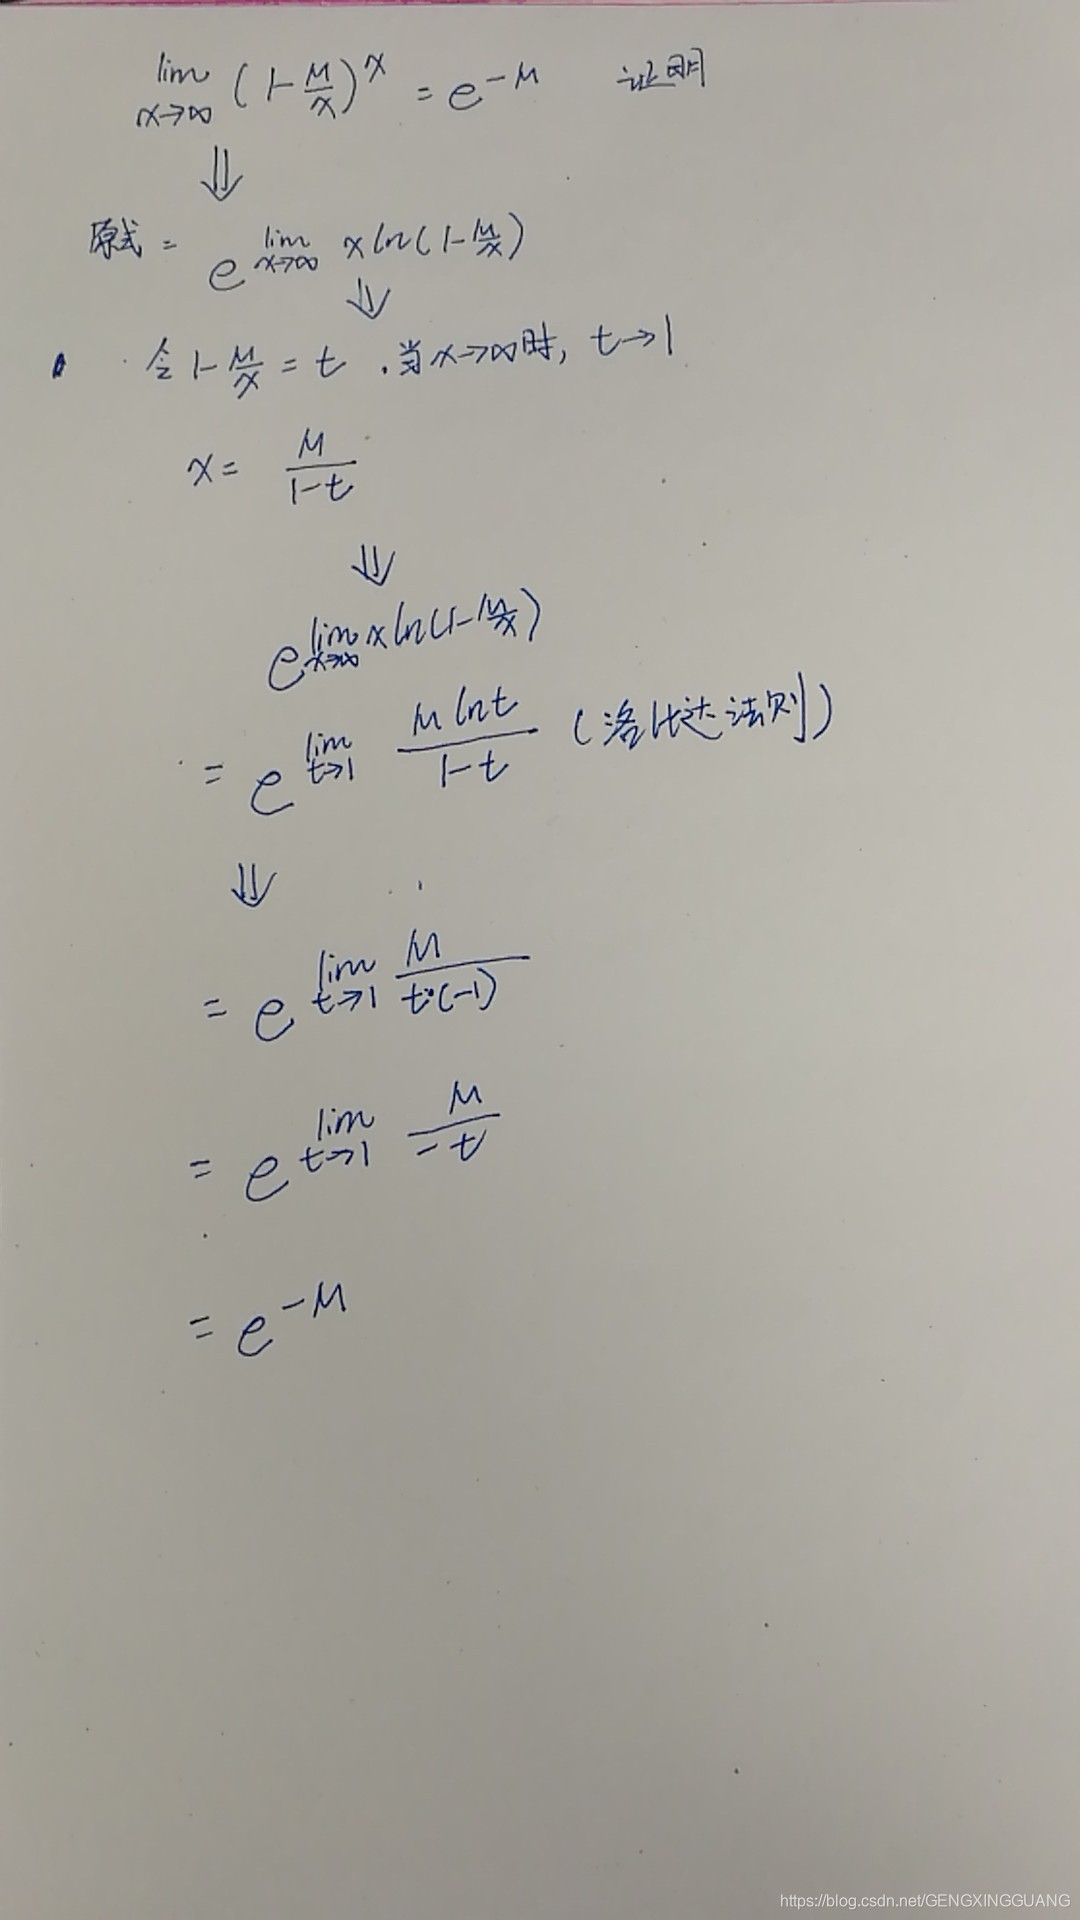 lim x→∞ (1-μ/x)^x = e^-μ 证明
⇓
原式 = e^lim x→∞ x ln(1-μ/x)
⇓
令 1-μ/x = t . 当x→∞时, t→1
x = μ/(1-t)
⇓
e^lim x→∞ x ln(1-μ/x)
= e^lim t→1 μ ln t/(1-t) (洛比达法则)
⇓
= e^lim t→1 μ/(t·(-1))
= e^lim t→1 μ/(-t)
= e^-μ
https://blog.csdn.net/GENGXINGGUANG